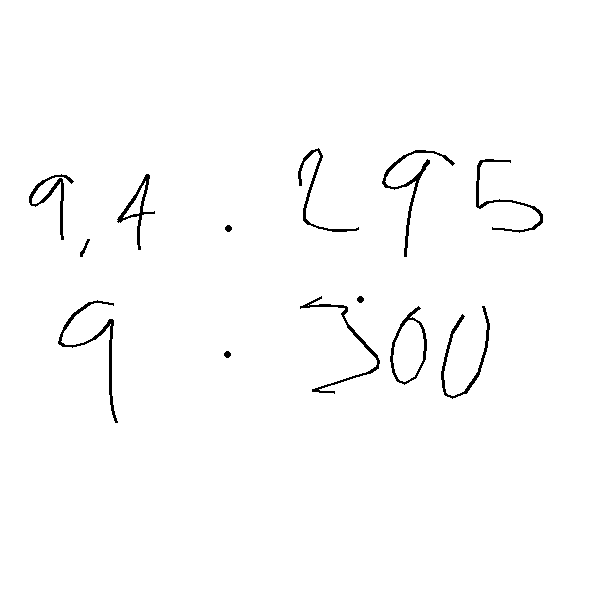 9,4 . 295
9 . 300